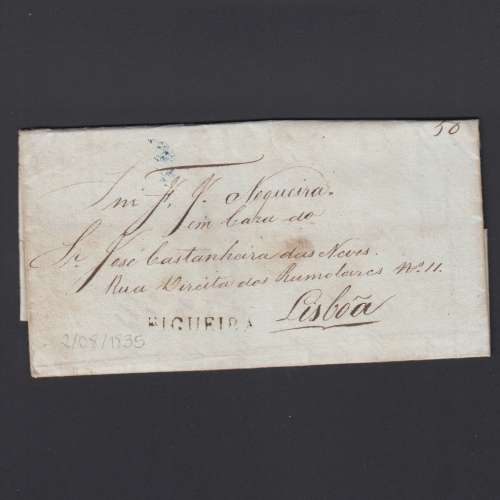 50
Snr F. J. Nogueira.
em Caza do
Sr. José Castanheira das Neves.
Rua Direita dos Rumolares Nº 11.
Lisbôa
FIGUEIRA
2/08/1835